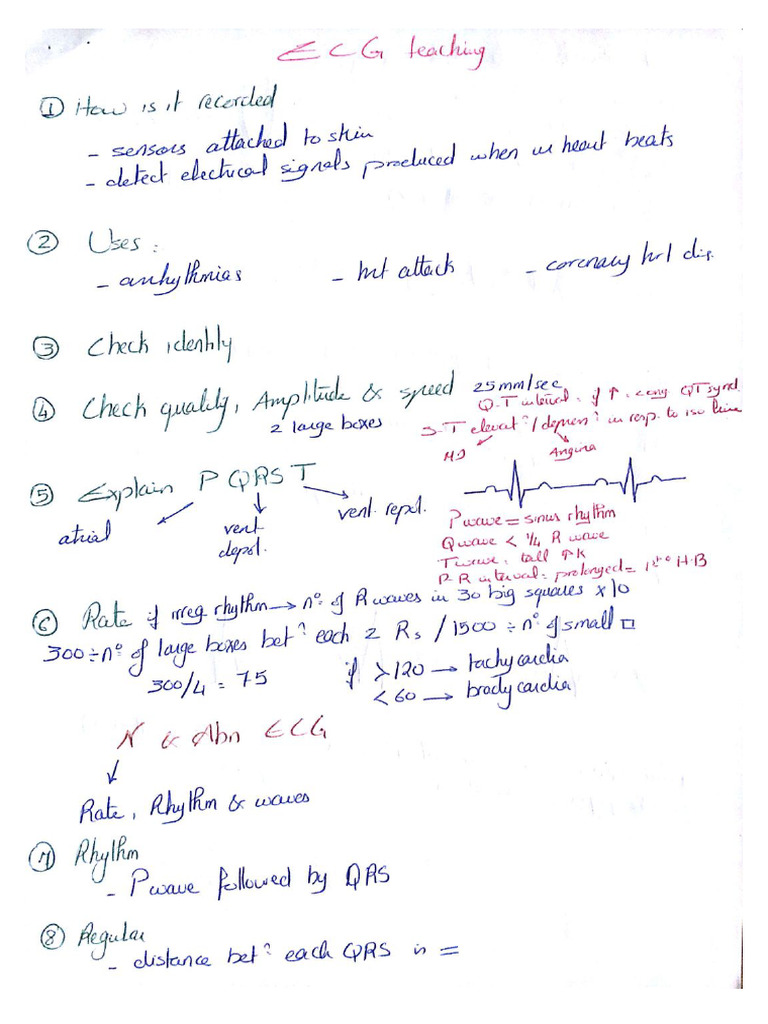 ECG teaching
① How is it recorded
- sensors attached to skin
- detect electrical signals produced when ur heart beats
② Uses :
- arrhythmias - hrt attack - coronary hrt dis.
③ Check identity
④ Check quality, Amplitude & speed 25mm/sec
2 large boxes
Q-T interval: if ↑ = cong QT synd
S-T elevat?/depress? in resp. to iso line
MI Angina
⑤ Explain P QRS T
atrial
vent depol.
vent. repol.
P wave = sinus rhythm
Q wave < 1/4 R wave
T wave: tall ↑K
P-R interval: prolonged = 1st° H.B
⑥ Rate if irreg. rhythm → n° of R waves in 30 big squares x 10
300 ÷ n° of large boxes bet? each 2 Rs / 1500 ÷ n° of small □
300/4 = 75
if >120 → tachycardia
<60 → bradycardia
N & Abn ECG
Rate, Rhythm & waves
⑦ Rhythm
- P wave followed by QRS
⑧ Regular
- distance bet? each QRS is =